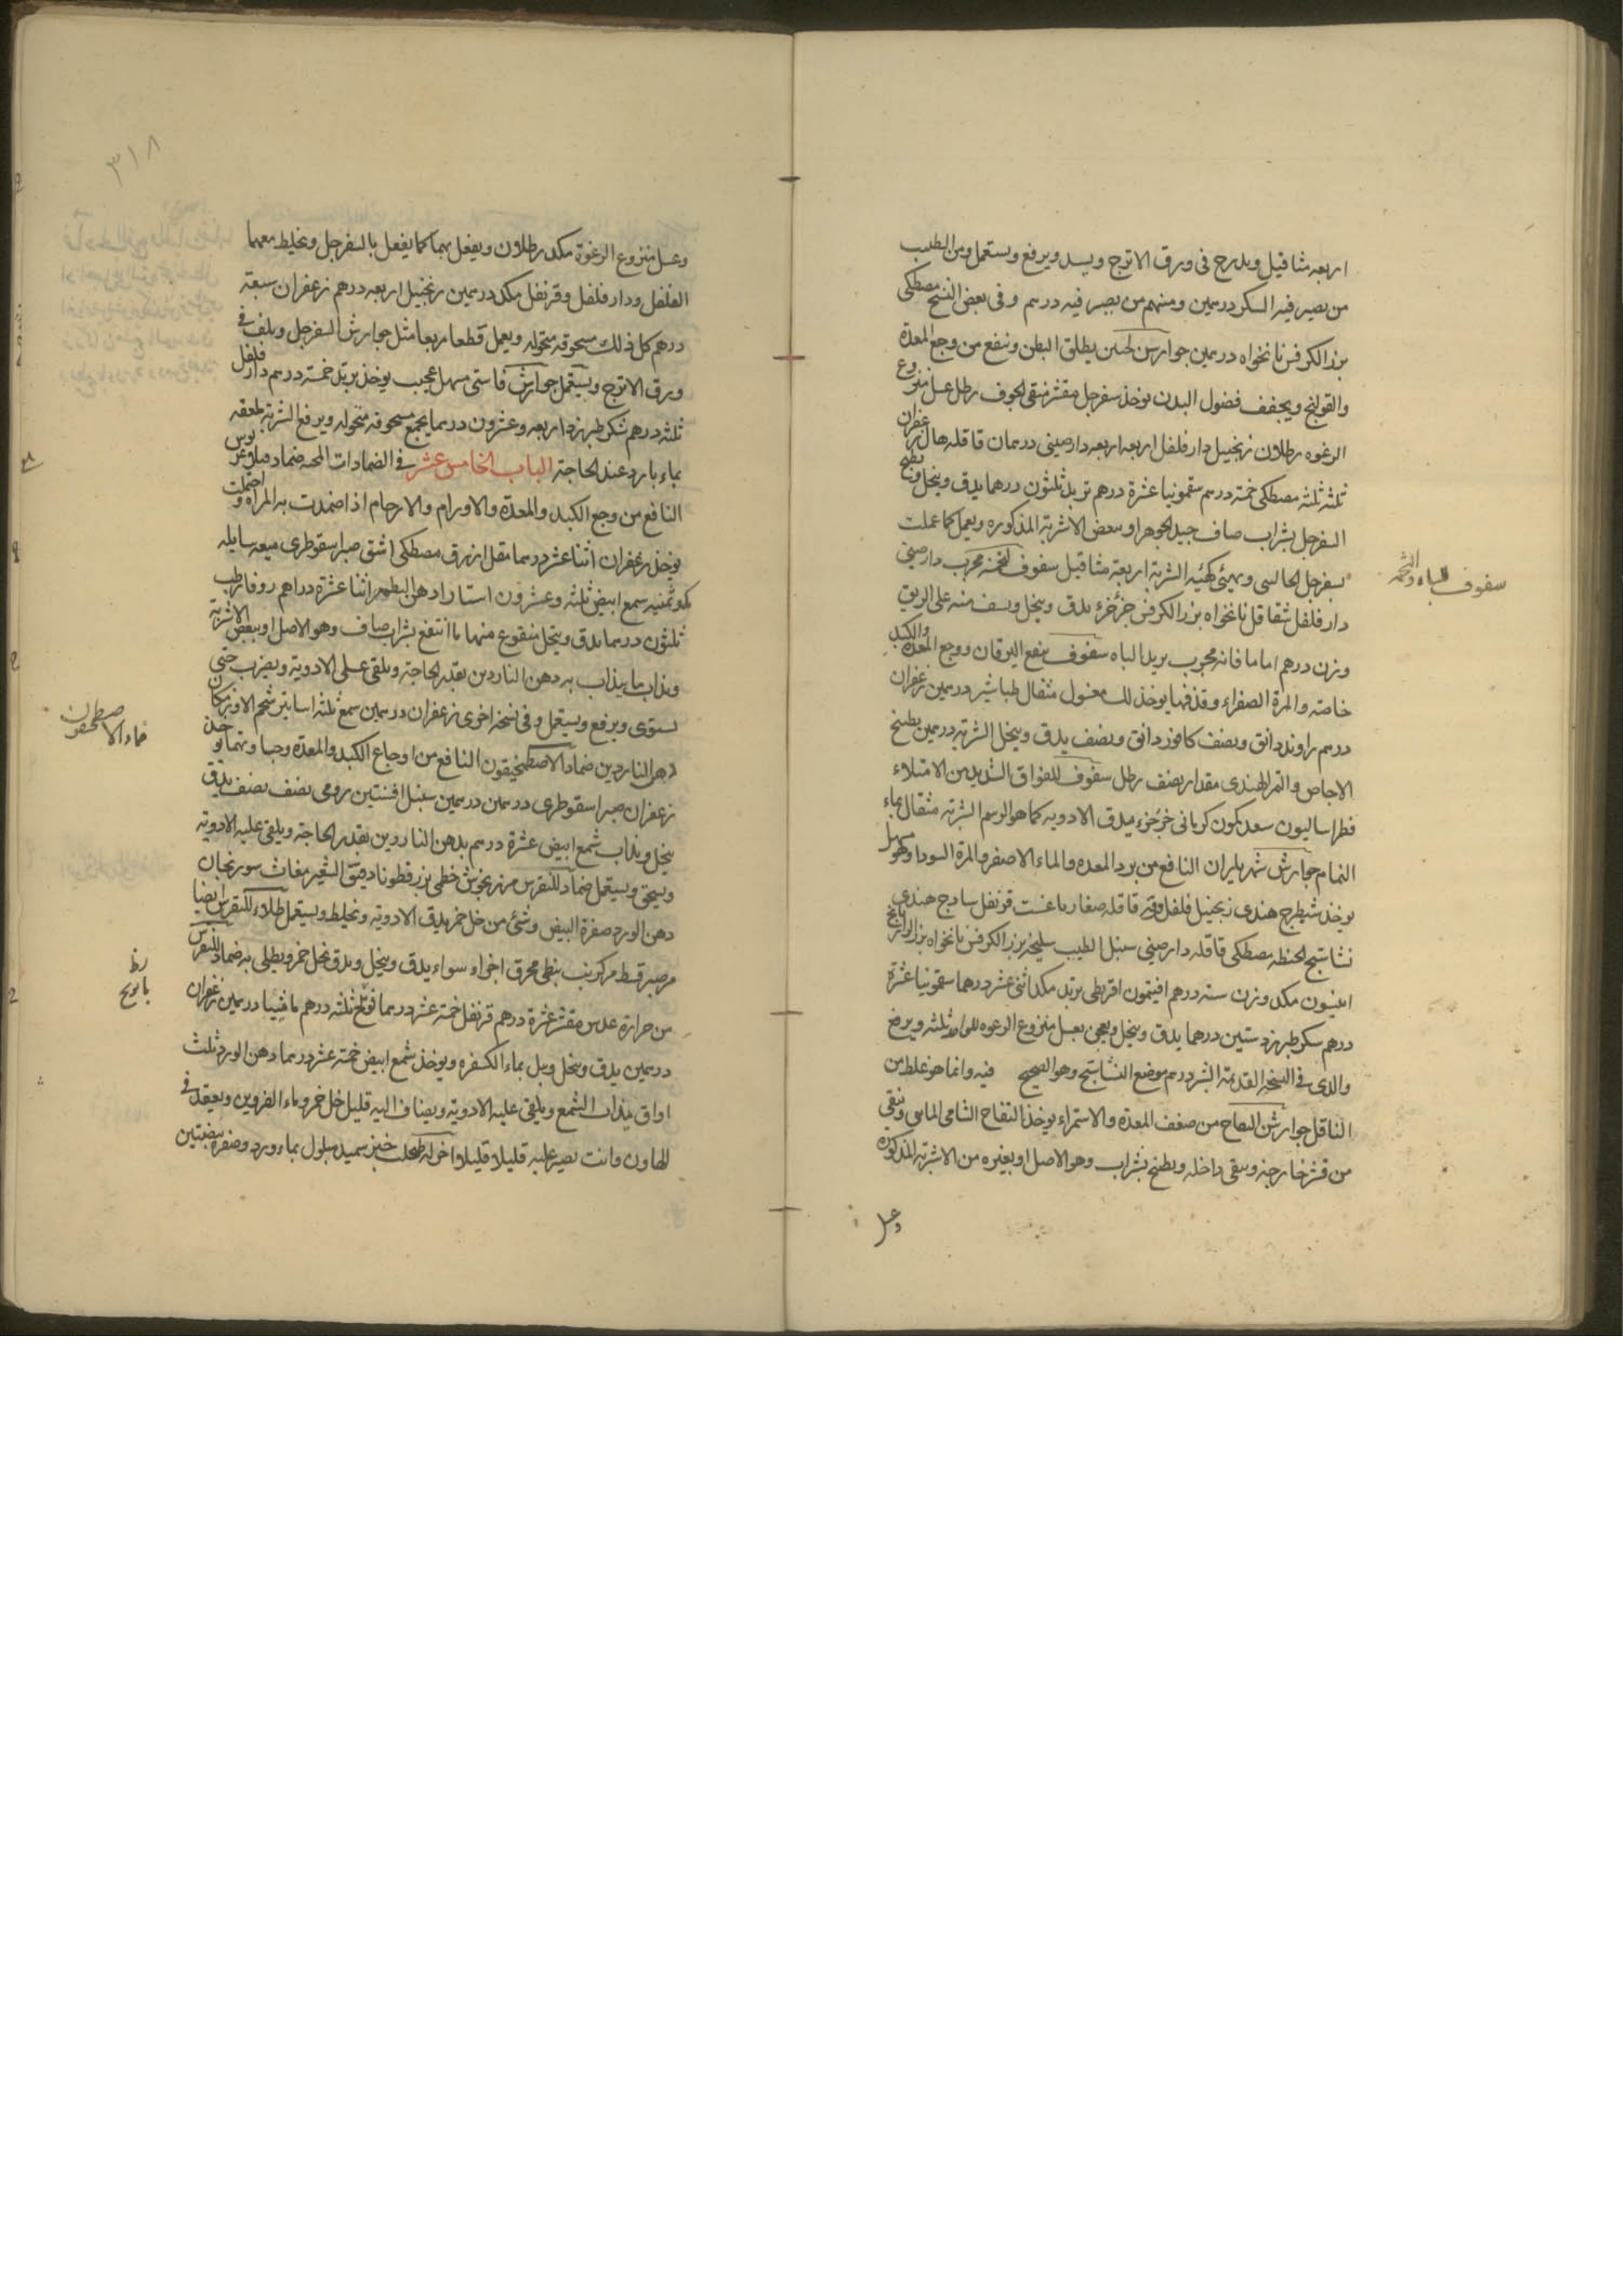 اربعه مثاقيل ويدرج فى ورق الاترج ويسد ويرفع ويستعمل ومن الطبيب
من يصير فيه السكر درهمين ومنهم من يصير فيه درهم وفى بعض النسخ مصطكى
بزر الكرفس نانخواه درهمين جوارس لحنين يطلق البطن وينفع من وجع المعدة
والقولنج ويجفف فضول البدن يوخذ سفرجل مقشر منقى الجوف رطل عسل منزوع
الرغوه رطلان زنجبيل دارفلفل اربعه اربعه دارصينى درهمان قاقله هال زعفران
ثلثه ثلثه مصطكى خمسة درهم سقمونيا عشرة درهم تربد ثلثون درهما يدق وينخل ويطبخ
السفرجل بشراب صاف جيد الجوهر او ببعض الاشربة المذكوره ويعمل كما عملت
بسفرجل الحالسى ويهيئ كهئيه الشربة اربعة مثاقيل سفوف لحنه مجرب دارصينى
سفوف للباه
دارفلفل شقاقل نانخواه بزر الكرفس جزء جزء يدق وينخل ويسف منه على الريق
وزن درهم اماما فانه مجرب يريد الباه سفوف ينفع اليرقان ووجع المعده والكبد
خاصه والمرة الصفراء وقذفها يوخذ لك مغسول مثقال طباشير درهمين زعفران
درهم راوند دانق ونصف كافور دانق ونصف يدق وينخل الشربة درهمين بطبخ
الاجاص والتمر الهندى مقدار نصف رطل سفوف للفواق الشديد من الامتلاء
فطراساليون سعد كمون كرمانى جزء جزء يدق الادويه كما هو الرسم الشربة مثقال بماء
النمام جوارش شهرياران النافع من برد المعده والماء الاصفر والمرة السودا وهو مسهل
يوخذ شيطرج هندى زنجبيل فلفل قاقله صغار قرنفل سادج هندى
نشاستج الحنطه مصطكى قاقله دارصينى سنبل الطيب سليخه بزر الكرفس نانخواه بزر الرازيانج
انيسون مكد وزن سته درهم افيتمون اقريطى تربد مكد اثنى عشر درهما سقمونيا عشرة
درهم سكر طبرزد ستين درهما يدق وينخل ويعجن بعسل منزوع الرغوه ثلثه ويرفع
والذى فى النسخه القديمة درهم موضع النشاستج وهو الصحيح فيه وانما هو غلط من
الناقل جوارش التفاح من ضعف المعدة والاستمراء يوخذ التفاح الشامى وينقى
من قشر خارجه ويبقى داخله ويطبخ بشراب وهو الاصل او بغيره من الاشربه المذكوره
وعسل
٣١٨
وعسل منزوع الرغوة مكد رطلان ويفعل بهما كما يفعل بالسفرجل ويخلط معهما
الفلفل ودارفلفل وقرنفل مكد درهمين زنجبيل اربعه درهم زعفران سبعة
درهم كل ذلك مسحوقه منخوله ويعمل قطعا مربعا مثل جوارش السفرجل ويلف فى
ورق الاترج ويستعمل جوارش مسهل عجيب يوخذ تربد خمسة درهم دارفلفل
ثلثه درهم سكر طبرزد اربعه وعشرون درهما يجمع مسحوقه منخوله ويرفع الشربة ملعقه
بماء بارد عند الحاجة الباب الخامس عشر فى الضمادات ضماد
النافع من وجع الكبد والمعدة والاورام والارحام اذا ضمدت به المراه واحتملت
يوخذ زعفران اثنا عشر درهما مقل ازرق مصطكى اشق صبر سقوطرى ميعه سايله
مكد ثمنيه شمع ابيض ثلثه وعشرون استارا دهن البطم اثنا عشرة دراهم زوفا رطب
ثلثون درهما يدق وينخل منقوع منهما ما انتفع بشراب صاف وهو الاصل او ببعض الاشربة
ويذاب ما يذاب به دهن الناردين بقدر الحاجة ويلقى على الادوية ويضرب حتى
يستوى ويرفع ويستعمل وفى نسخه اخرى زعفران درهمين شمع ثلثه اساتير شحم الاوز مكان
ضماد الاصطمخيقون
دهن الناردين ضماد الاصطمخيقون النافع من اوجاع الكبد والمعدة يوخذ
زعفران صبر اسقوطرى درهمين درهمين سنبل افسنتين رومى نصف نصف يدق
ينخل ويذاب شمع ابيض عشرة درهم بدهن الناردين بقدر الحاجة ويلقى عليه الادوية
ويسحق ويستعمل ضماد للنقرس مرزنجوش خطمى بزر قطونا دقيق الشعير مغاث سورنجان
دهن الورد صفرة البيض وشئ من خل خمر يدق الادوية ويخلط ويستعمل طلاء للنقرس ايضا
مر صبر قسط محرق اجزاء سواء يدق وينخل ويدق بخل خمر ويطلى به ضماد للنقرس
بابونج
من حرارة عدس مقشر عشرة درهم قرنفل خمسة عشر درهما ثلثه درهم ماميثا درهمين زعفران
درهمين يدق وينخل ويبل بماء الكسفره ويوخذ شمع ابيض خمسة عشر درهما دهن الورد ثلث
اواق يذاب الشمع ويلقى عليه الادوية ويضاف اليه قليل خل خمر وماء ويعقد فى
الهاون وانت تصير عليه قليلا قليلا اخر له خبز سميد مبلول بماء ورد وصفره بيضتين